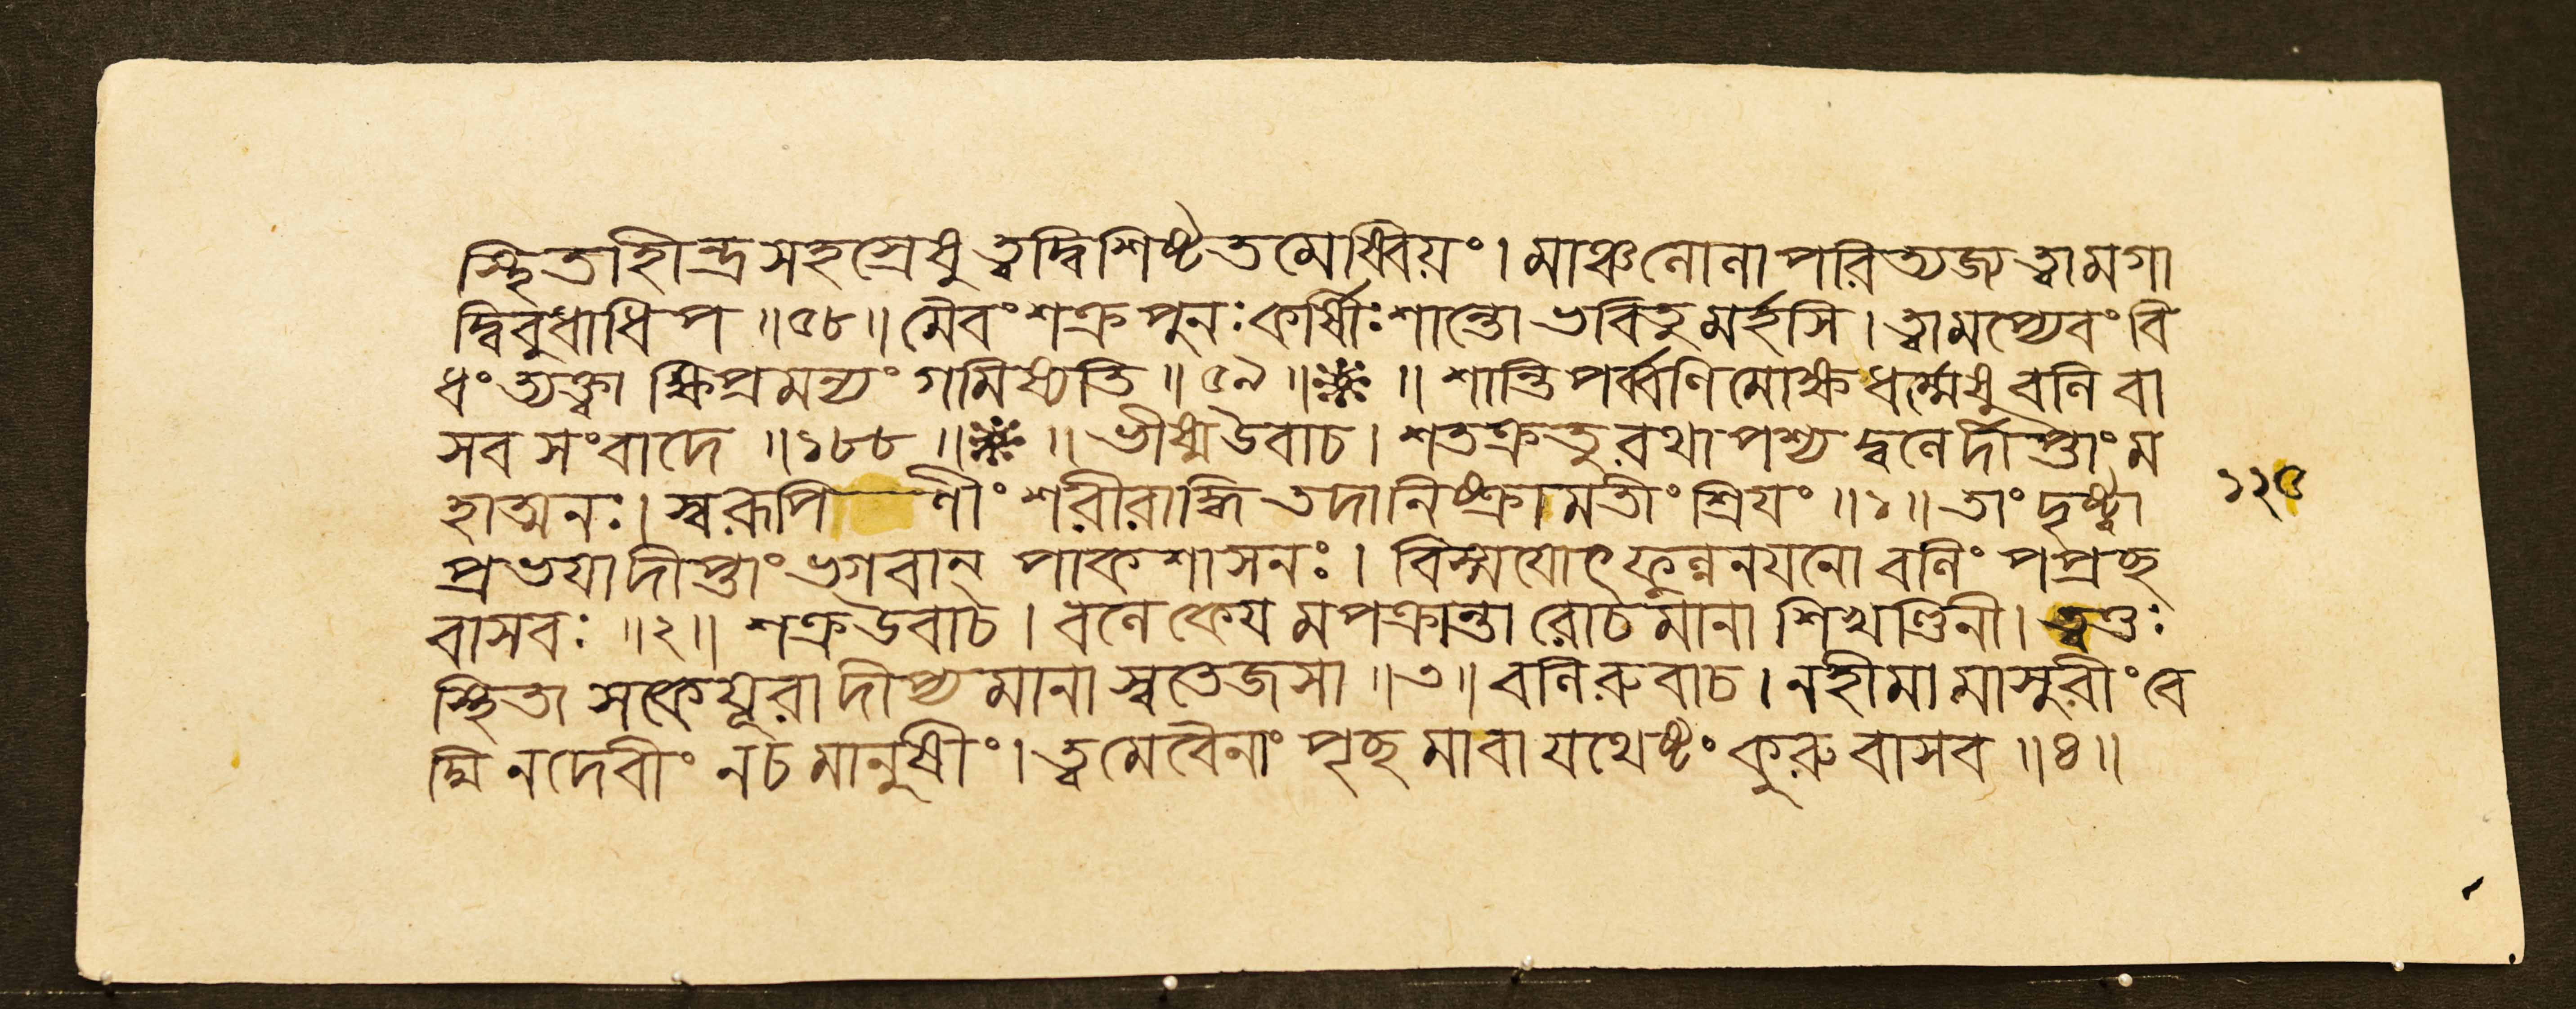 স্থিতাহীন্দ্রসহস্রেষুত্বদ্বিশিষ্টতমেষ্বিয়ং।মাঞ্চলোলাপরিত্যজ্যত্বামগা
দ্বিবুধাধিপ॥৫৮॥মৈবংশক্রপুনঃকার্ষীঃশান্তোভবিতুমর্হসি।ত্বামপ্যেবংবি
ধংত্যক্ত্বাক্ষিপ্রমন্যংগমিষ্যতি॥৫৯॥※॥শান্তিপর্ব্বণিমোক্ষধর্ম্মেষুবলিবা
সবসংবাদে॥১৮৮॥※॥ভীষ্মউবাচ।শতক্রতুরথাপশ্যদ্বলের্দীপ্তাংম
হাত্মনঃ।স্বরূপিণীংশরীরাদ্ধিতদানিষ্ক্রামতীংশ্রিযং॥১॥তাংদৃষ্ট্বা
প্রভযাদীপ্তাংভগবান্পাকশাসনঃ।বিস্মযোৎফুল্লনযনোবলিংপপ্রচ্ছ
বাসবঃ॥২॥শক্রউবাচ।বলেকেযমপক্রান্তারোচমানাশিখণ্ডিনী।ত্বত্তঃ
স্থিতাসকেযূরাদীপ্যমানাস্বতেজসা॥৩॥বলিরুবাচ।নহীমামাসুরীংবে
দ্মিনদেবীংনচমানুষীং।ত্বমেবৈনাংপৃচ্ছমাবাযথেষ্টংকুরুবাসব॥৪॥
১২৫